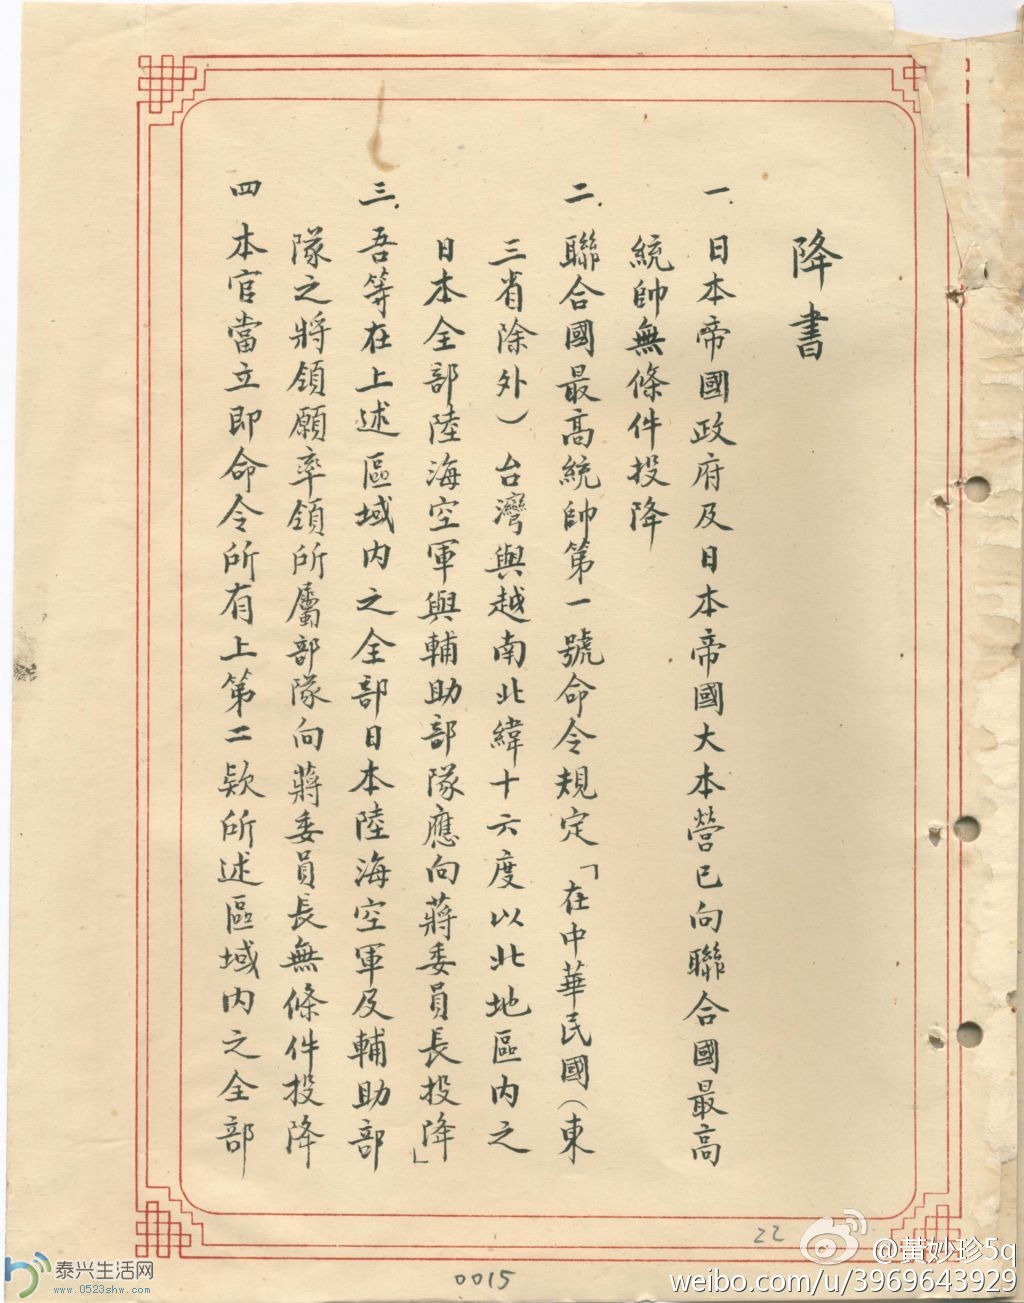 降書
一.日本帝國政府及日本帝國大本營已向聯合國最高
統帥無條件投降
二.聯合國最高統帥第一號命令規定「在中華民國(東
三省除外)台灣與越南北緯十六度以北地區内之
日本全部陸海空軍與輔助部隊應向蔣委員長投降」
三.吾等在上述區域内之全部日本陸海空軍及輔助部
隊之將領願率領所屬部隊向蔣委員長無條件投降
四 本官當立即命令所有上第二款所述區域内之全部
22
0015
泰兴生活网
www.0523shw.com
@黄妙珍5q
weibo.com/u/3969643929